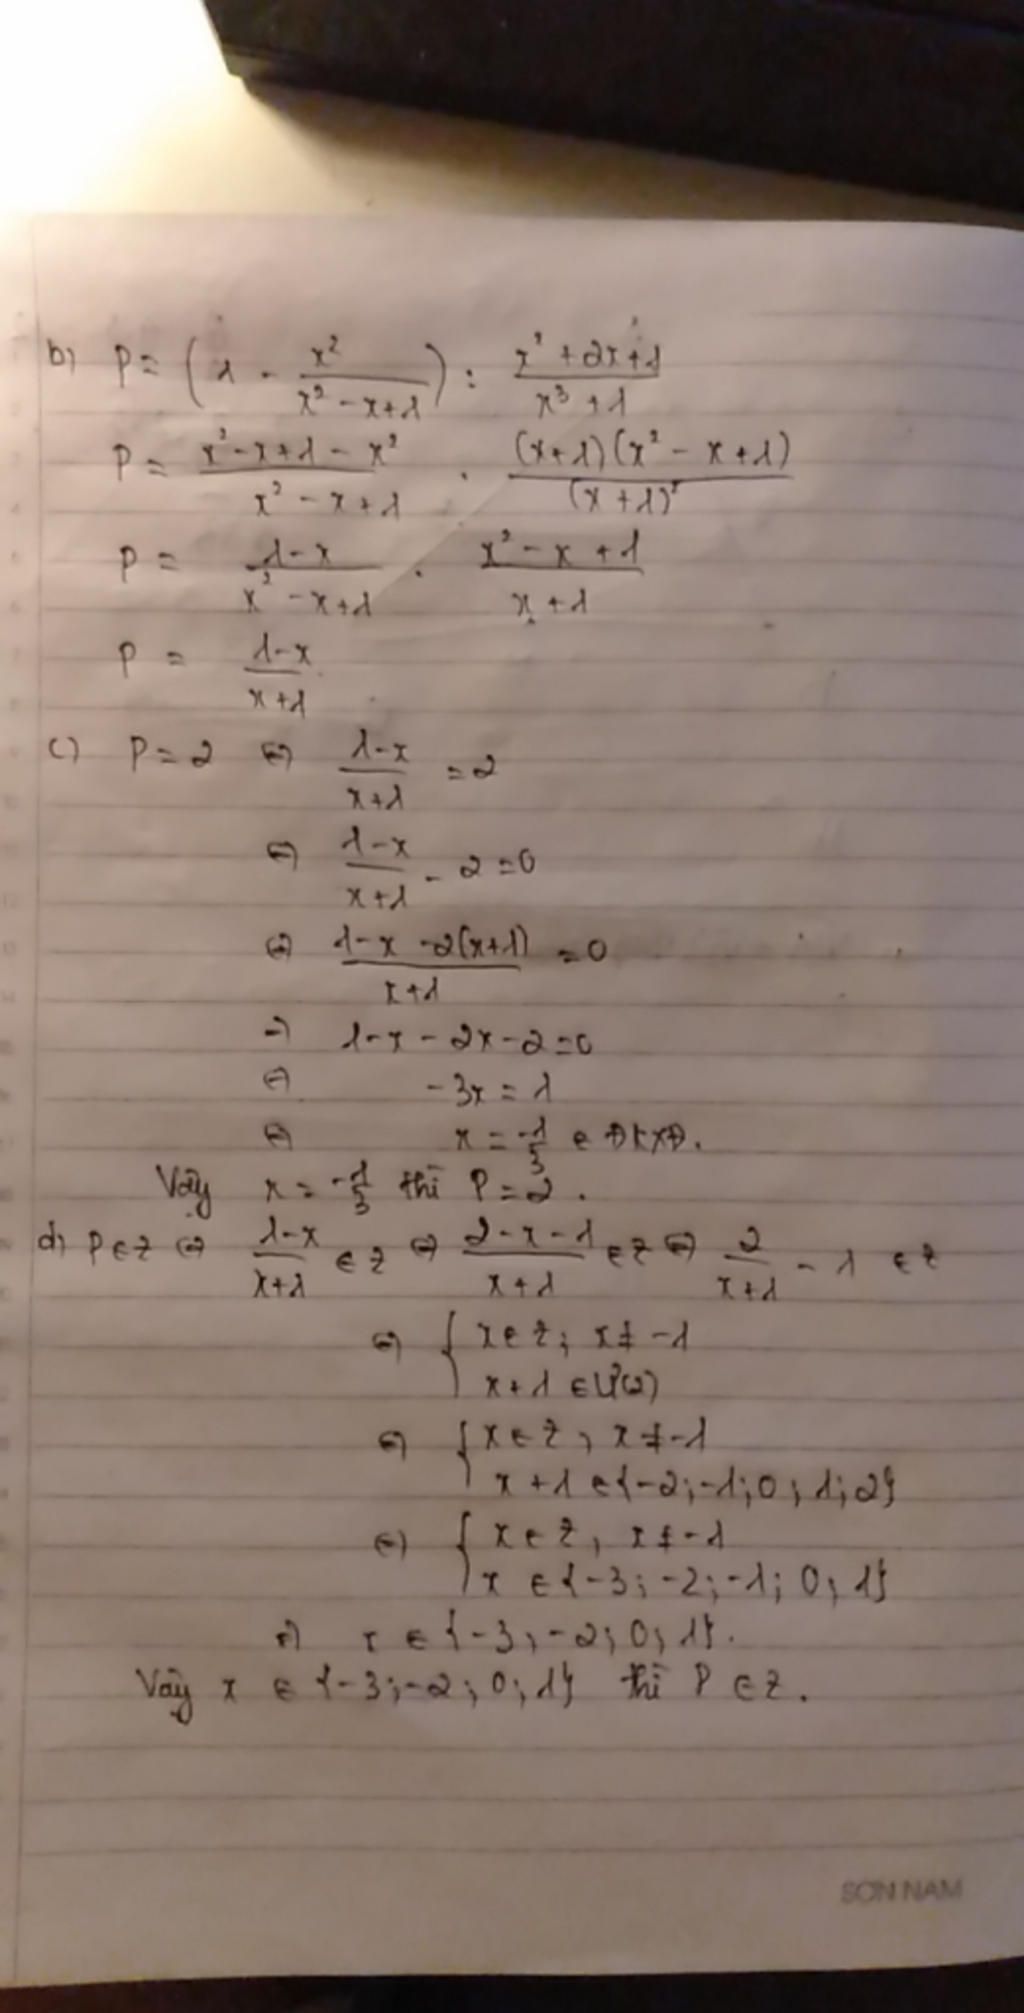 b) P = ( 1 - x²/(x² - x + 1) ) : (x² + 2x + 1)/(x³ + 1)
P = (x² - x + 1 - x²)/(x² - x + 1) . (x + 1)(x² - x + 1)/(x + 1)²
P = (1 - x)/(x² - x + 1) . (x² - x + 1)/(x + 1)
P = (1 - x)/(x + 1)
c) P = 2 ⇔ (1 - x)/(x + 1) = 2
⇔ (1 - x)/(x + 1) - 2 = 0
⇔ (1 - x - 2(x + 1))/(x + 1) = 0
⇒ 1 - x - 2x - 2 = 0
⇔ -3x = 1
⇔ x = -1/3 ∈ ĐKXĐ.
Vậy x = -1/3 thì P = 2 .
d) P ∈ Z ⇔ (1 - x)/(x + 1) ∈ Z ⇔ (2 - x - 1)/(x + 1) ∈ Z ⇔ 2/(x + 1) - 1 ∈ Z
⇔ { x ∈ Z ; x ≠ -1
x + 1 ∈ Ư(2)
⇔ { x ∈ Z , x ≠ -1
x + 1 ∈ {-2 ; -1 ; 0 ; 1 ; 2}
⇔ { x ∈ Z , x ≠ -1
x ∈ {-3 ; -2 ; -1 ; 0 ; 1}
⇔ x ∈ {-3 ; -2 ; 0 ; 1}.
Vậy x ∈ {-3 ; -2 ; 0 ; 1} thì P ∈ Z .
SON NAM